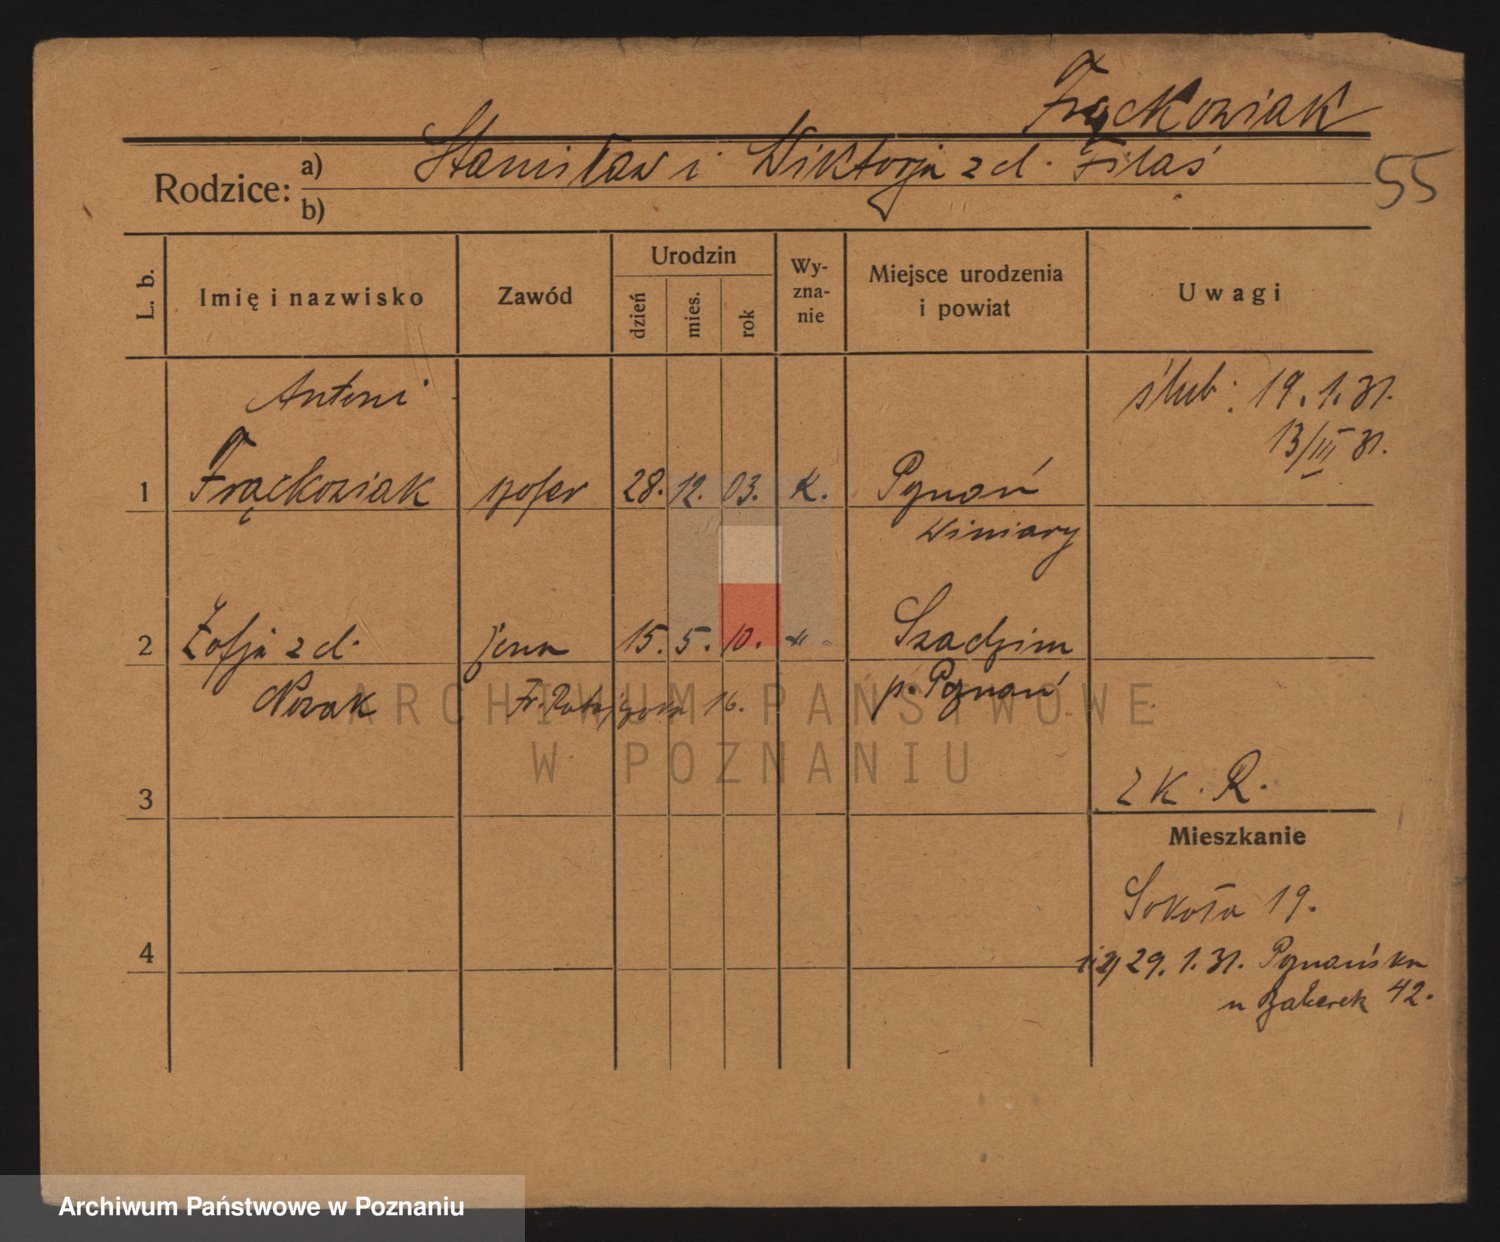 Frąckowiak
Rodzice: a) Stanisław i Wiktorja z d. Filaś
b)
55
L. b.
Imię i nazwisko
Zawód
Urodzin
dzień
mies.
rok
Wy-
zna-
nie
Miejsce urodzenia
i powiat
Uwagi
Antoni
ślub: 19. 1. 31.
13/III 31.
1 Frąckowiak szofer 28. 12. 03. K. Poznań
Winiary
2 Zofja z d. żona 15. 5. 10. -"- Szadzim
Nowak Fr. 16. p. Poznań
z K. R.
3
Mieszkanie
Sokoła 19.
4
29. 1. 31. Poznańska
u 42.
ARCHIWUM PAŃSTWOWE
W POZNANIU
Archiwum Państwowe w Poznaniu